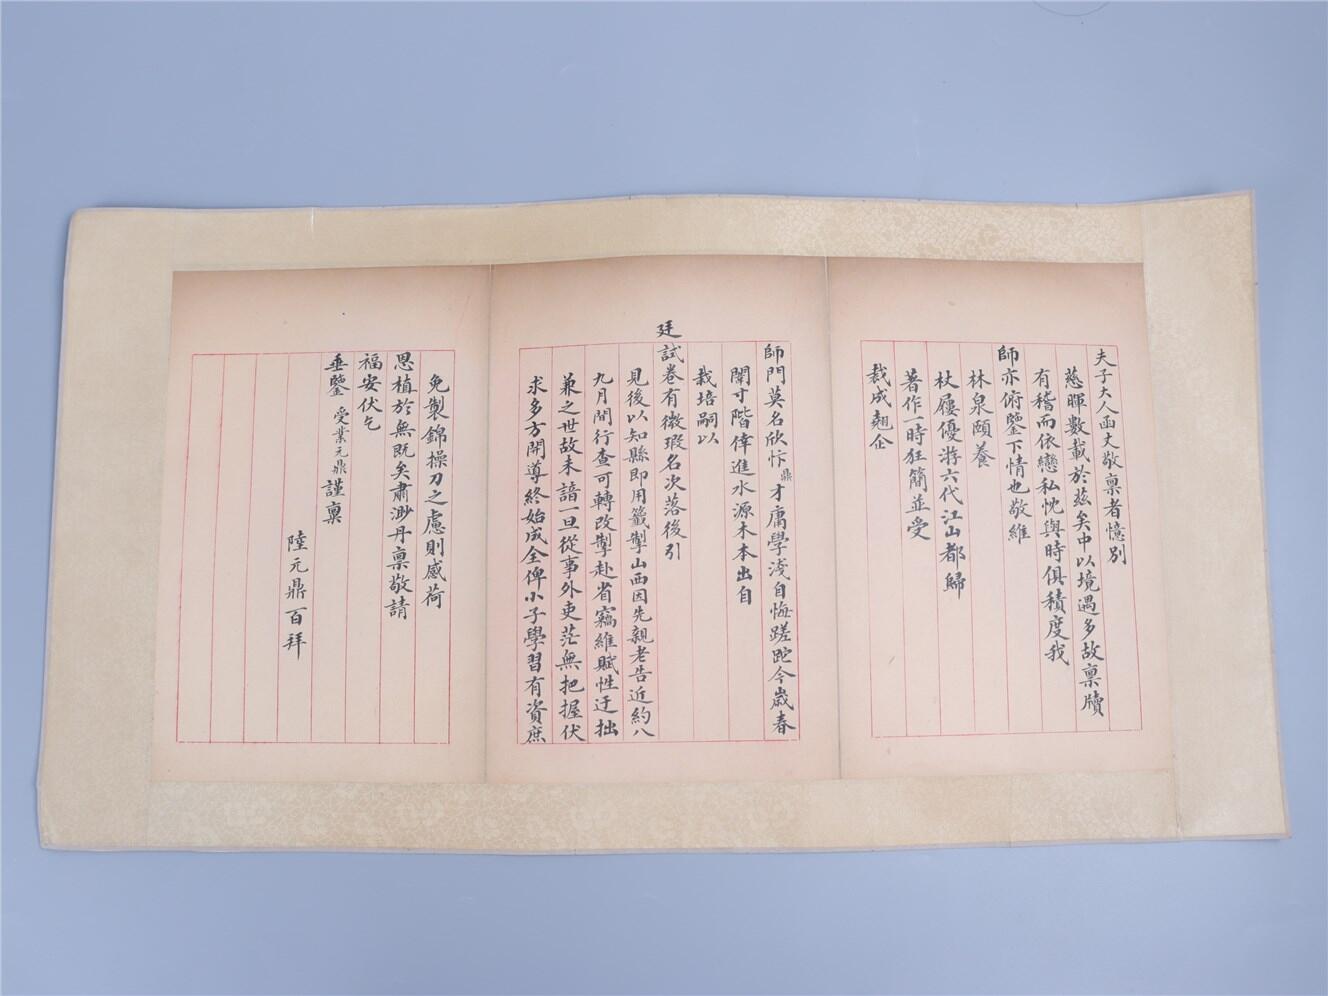 夫子大人函丈敬稟者憶別
慈暉數載於茲矣中以境遇多故稟牘
有稽而依戀私忱與時俱積度我
師亦俯鑒下情也敬維
林泉頤養
杖履優游六代江山都歸
著作一時狂簡並受
裁成翹企
師門莫名欣忭鼎才庸學淺自悔蹉跎今歲春
闈寸階倖進水源木本出自
栽培嗣以
廷試卷有微瑕名次落後引
見後以知縣即用籤掣山西因先親老告近約八
九月間行查可轉改掣赴省竊維賦性迂拙
兼之世故未諳一旦從事外吏茫無把握伏
求多方開導終始成全俾小子學習有資庶
免製錦操刀之慮則感荷
恩植於無既矣肅渺丹稟敬請
福安伏乞
垂鑒 受業元鼎謹稟
陸元鼎百拜